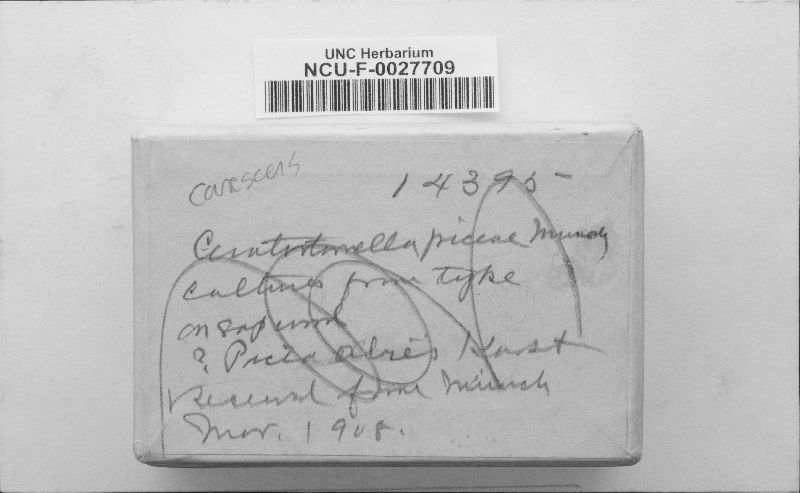 UNC Herbarium
NCU-F-0027709
14395
Ceratostomella piceae Münch
cultures from type
on sapwood
? Picea host
Received from Münch
Nov. 1908.